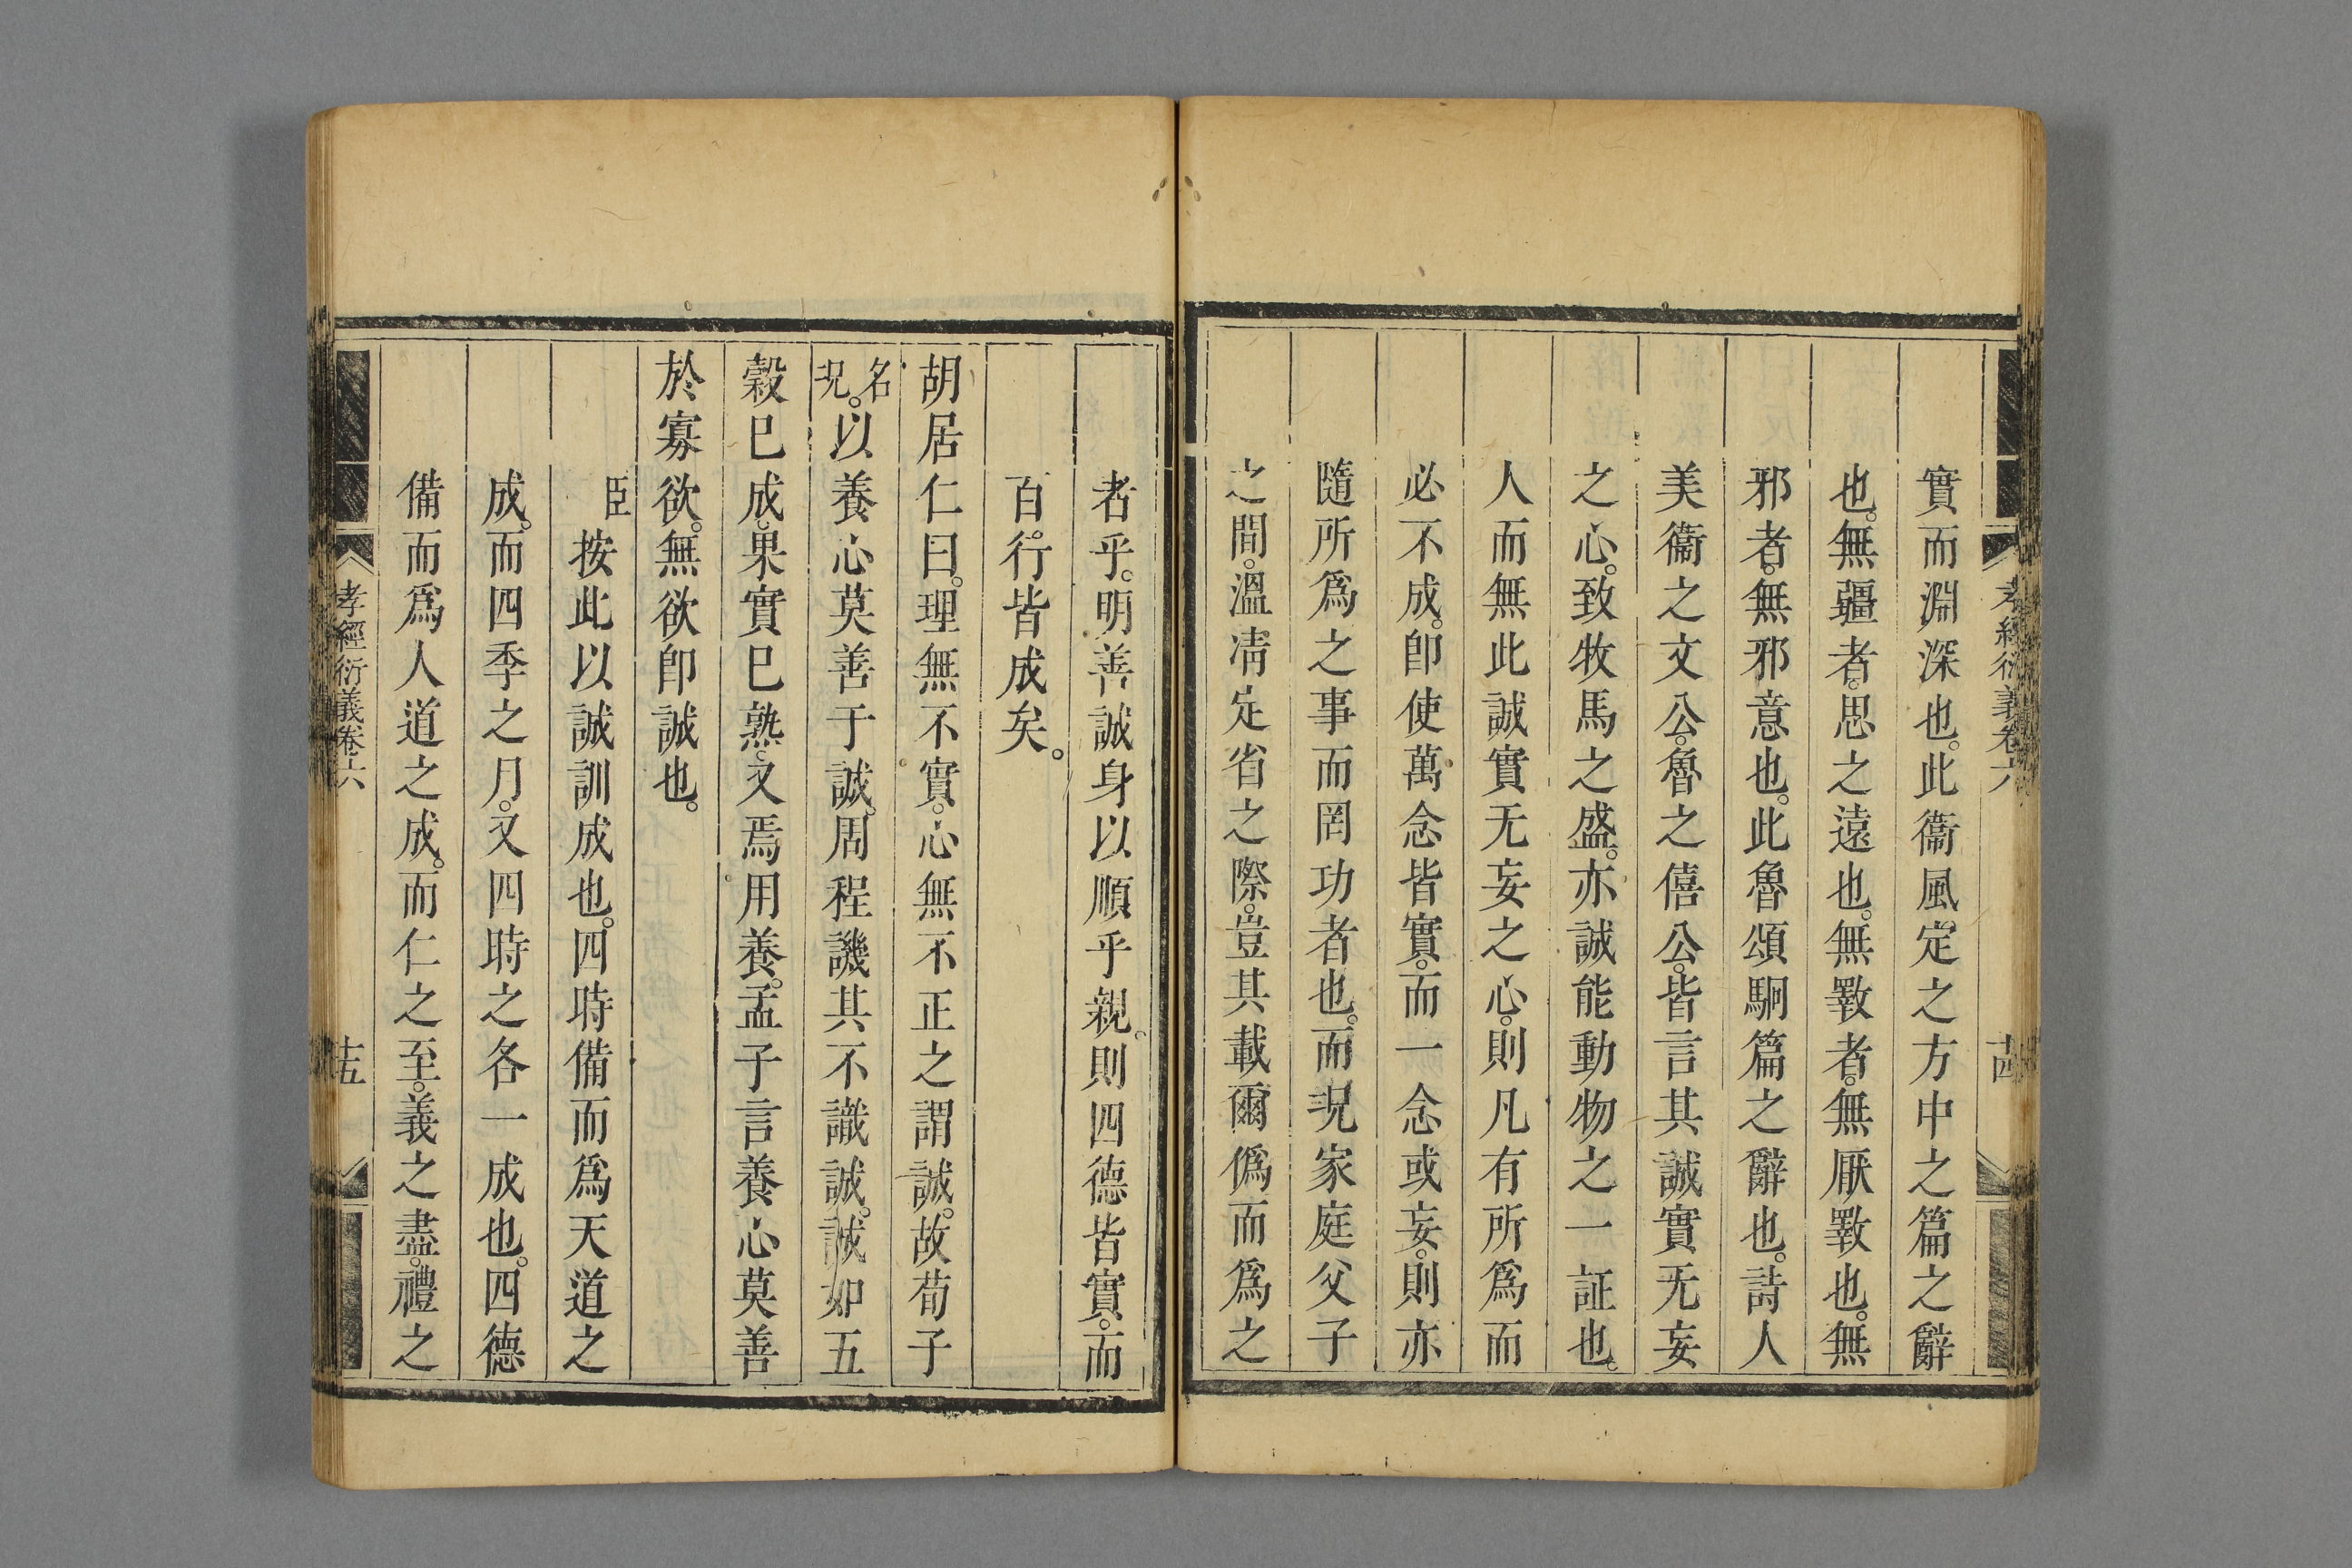 孝經衍義卷六
十四
實而淵深也。此衞風定之方中之篇之辭
也。無疆者。思之遠也。無斁者。無厭斁也。無
邪者。無邪意也。此魯頌駉篇之辭也。詩人
美衞之文公。魯之僖公。皆言其誠實无妄
之心。致牧馬之盛。亦誠能動物之一証也。
人而無此誠實无妄之心。則凡有所爲而
必不成。卽使萬念皆實。而一念或妄。則亦
隨所爲之事而罔功者也。而況家庭父子
之間。溫凊定省之際。豈其載爾僞而爲之
者乎。明善誠身以順乎親。則四德皆實。而
百行皆成矣。
胡居仁曰。理無不實。心無不正之謂誠。故荀子
名況。以養心莫善于誠。周程譏其不識誠。誠如五
穀已成。果實已熟。又焉用養。孟子言養心莫善
於寡欲。無欲卽誠也。
臣按此以誠訓成也。四時備而爲天道之
成。而四季之月。又四時之各一成也。四德
備而爲人道之成。而仁之至。義之盡。禮之
孝經衍義卷六
十五